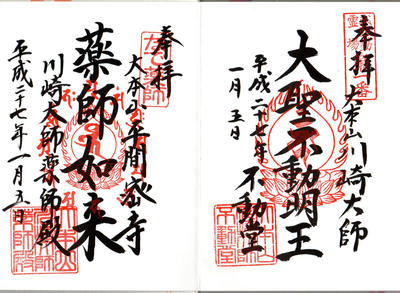 奉拝
大本山川崎大師
大聖不動明王
平成二十七年
一月五日
不動堂
奉拝
大本山平間密寺
薬師如来
川崎大師薬師殿
平成二十七年一月五日
なで薬師